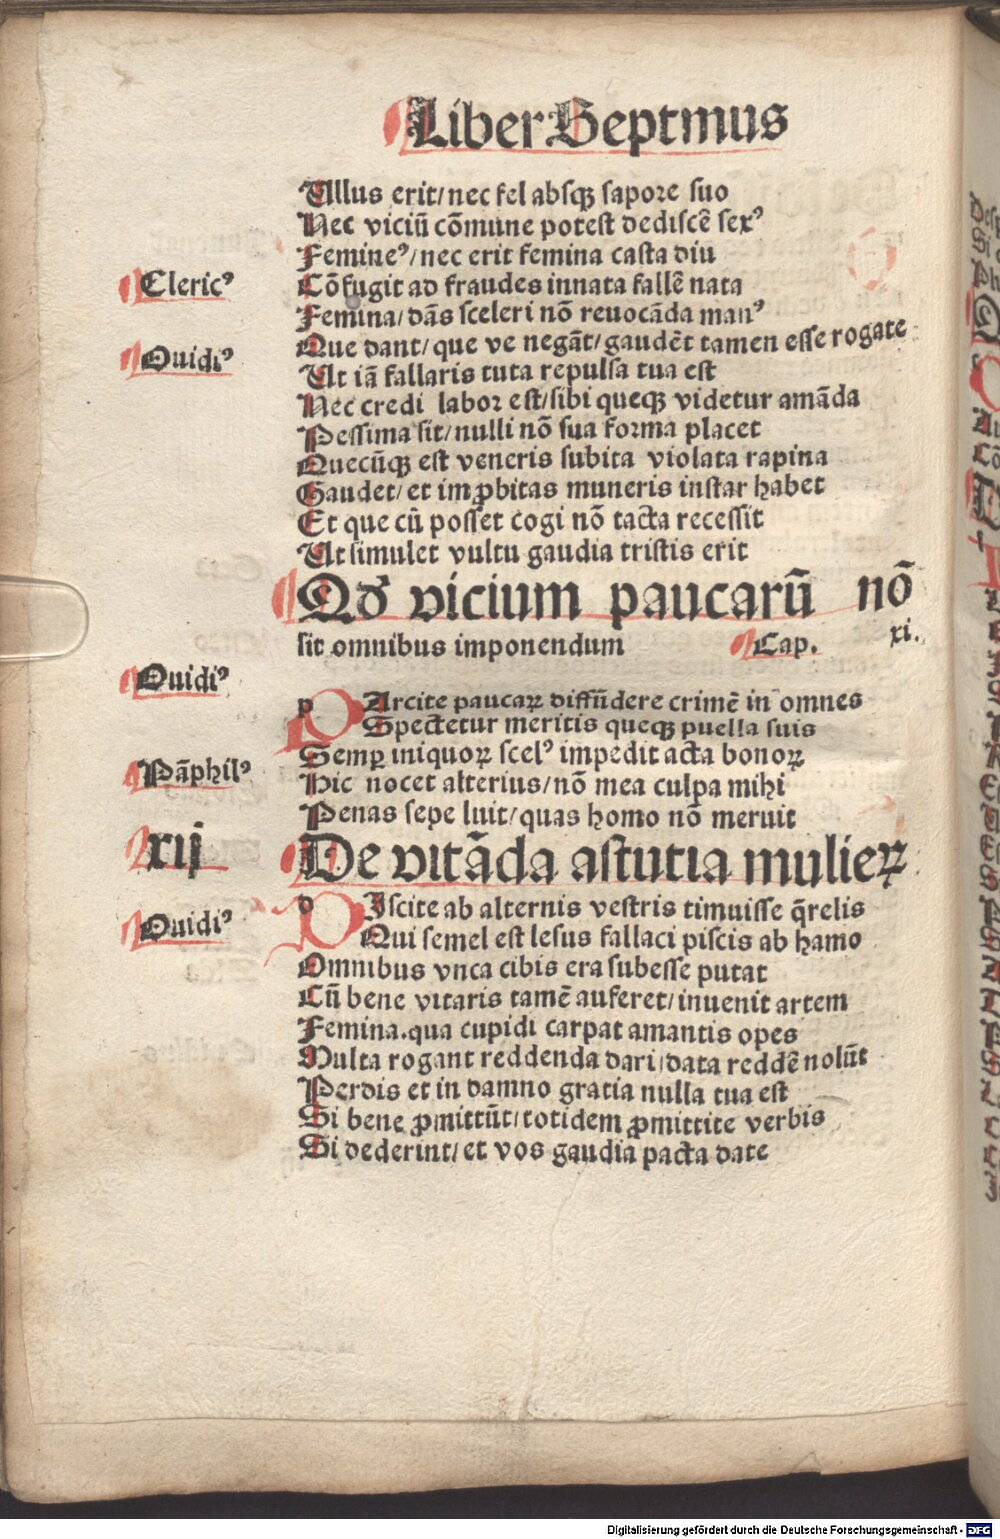 Liber Septmus
Ullus erit/ nec fel absqꝫ sapore suo
Nec viciū cōmune potest dediscē sexꝰ
Femineꝰ/ nec erit femina casta diu
Clericꝰ
Cōfugit ad fraudes innata fallē nata
Femina/ dās sceleri nō reuocāda manꝰ
Ouidiꝰ
Que dant/ que ve negāt/ gaudēt tamen esse rogate
Ut iā fallaris tuta repulsa tua est
Nec credi labor est/ sibi queqꝫ videtur amāda
Pessima sit/ nulli nō sua forma placet
Quecūqꝫ est veneris subita violata rapina
Gaudet/ et imꝓbitas muneris instar habet
Et que cū posset cogi nō tacta recessit
Ut simulet vultu gaudia tristis erit
Qd vicium paucarū nō
sit omnibus imponendum Cap. xi.
Ouidiꝰ
p Arcite paucaꝝ diffūdere crimē in omnes
Spectetur meritis queqꝫ puella suis
Semꝑ iniquoꝝ scelꝰ impedit acta bonoꝝ
Pāphilꝰ
Hic nocet alterius/ nō mea culpa mihi
Penas sepe luit/ quas homo nō meruit
xij
De vitāda astutia mulieꝝ
Ouidiꝰ
d Iscite ab alternis vestris timuisse q̄relis
Qui semel est lesus fallaci piscis ab hamo
Omnibus vnca cibis era subesse putat
Cū bene vitaris tamē auferet/ inuenit artem
Femina. qua cupidi carpat amantis opes
Multa rogant reddenda dari/ data reddē nolūt
Perdis et in damno gratia nulla tua est
Si bene ꝓmittūt/ totidem ꝓmittite verbis
Si dederint/ et vos gaudia pacta date
Digitalisierung gefördert durch die Deutsche Forschungsgemeinschaft - DFG